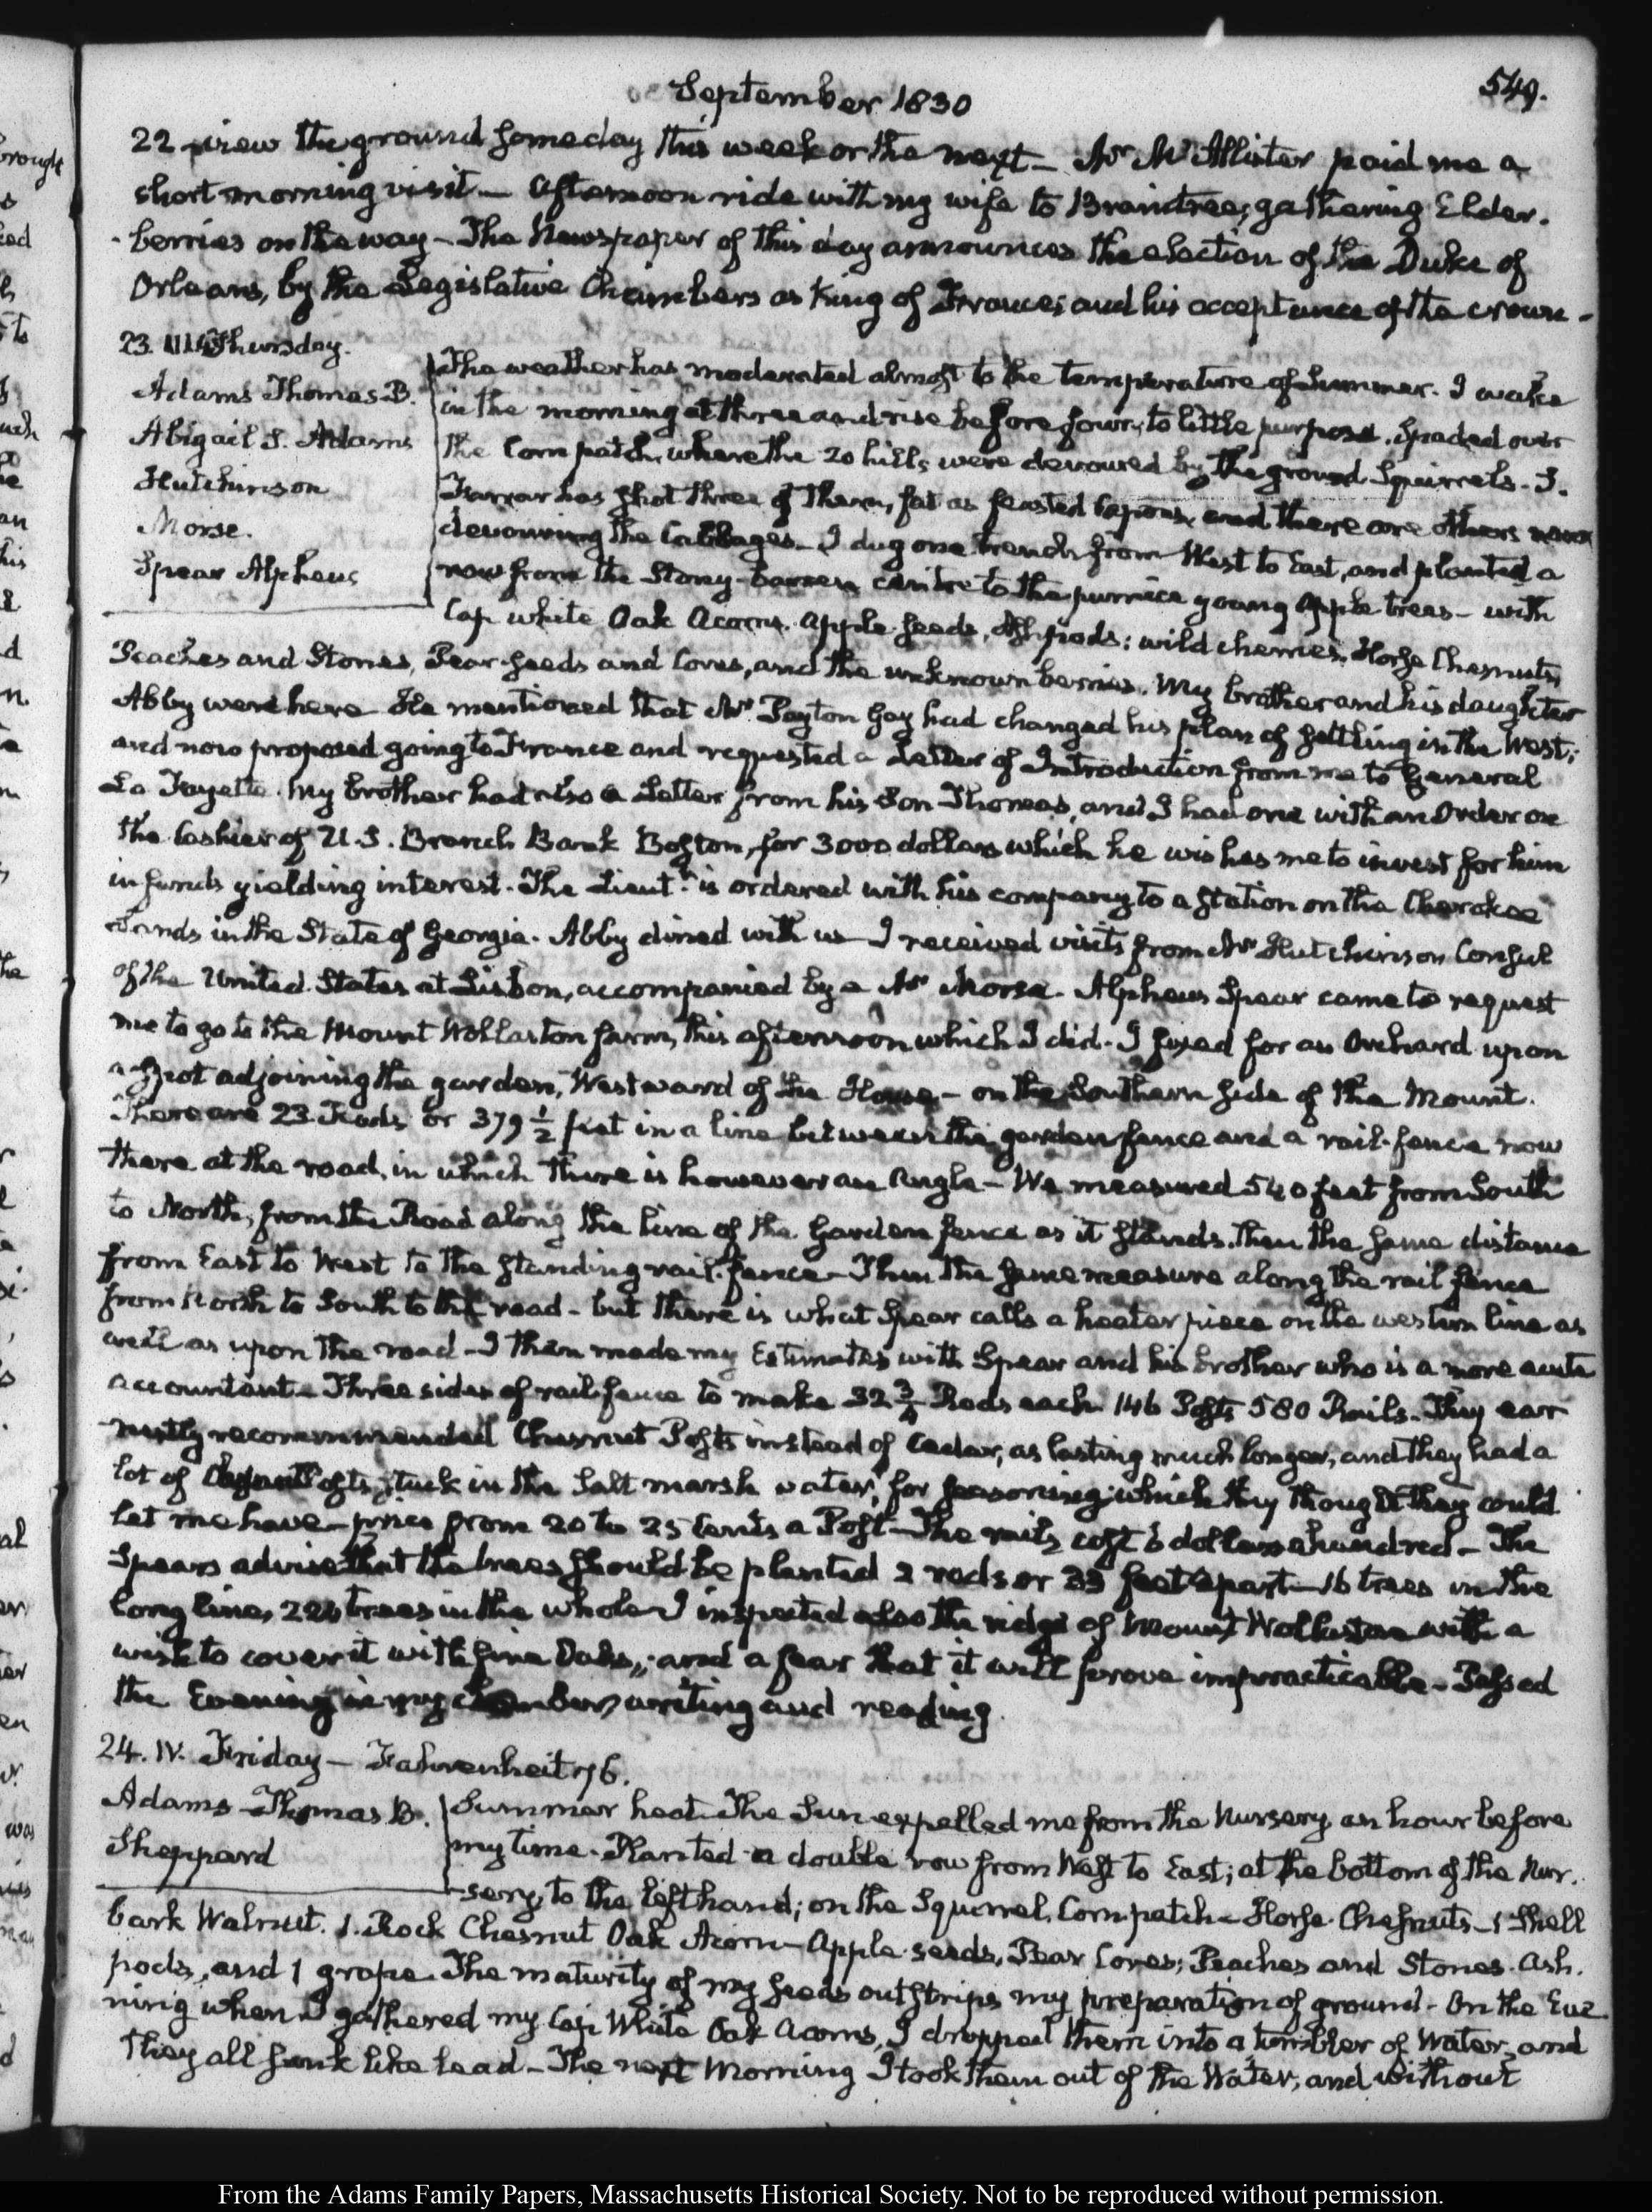 September 1830
549.
22 view the ground someday this week or the next — Mr McAllister paid me a
short morning visit — Afternoon ride with my wife to Braintree; gathering Elder-
-berries on the way — The Newspaper of this day announces the election of the Duke of
Orleans, by the Legislative Chambers as King of France; and his acceptance of the crown -
23. Thursday.
Adams Thomas B.
Abigail S. Adams
Hutchinson
Morse.
Spear Alpheus
The weather has moderated almost to the temperature of Summer. I wake
in the morning at three and rise before four, to little purpose. Spaded over
the Corn patch, where the 20 hills were devoured by the ground Squirrels - J.
Farrar has shot three of them, fat as feasted Capons, and there are others now
devouring the Cabbages - I dug one trench from West to East, and planted a
row from the Stony-barren centre to the young Apple trees - with
Cap white Oak Acorns. Apple-seeds, Ash pods: wild cherries, Horse Chesnuts,
Peaches and Stones, Pear-seeds and Cores, and the unknown berries. My brother and his daughter
Abby were here He mentioned that Mr Payton Gay had changed his plan of settling in the West;
and now proposed going to France and requested a Letter of Introduction from me to General
La Fayette. My brother had also a Letter from his Son Thomas, and I had one with an Order on
the Cashier of U.S. Branch Bank Boston, for 3000 dollars which he wishes me to invest for him
in funds yielding interest. The Lieutt. is ordered with his company to a station on the Cherokee
Lands in the State of Georgia. Abby dined with us I received visits from Mr Hutchinson Consul
of the United States at Lisbon, accompanied by a Mr Morse. Alpheus Spear came to request
me to go to the Mount Wollaston farm, this afternoon which I did. I fixed for an Orchard upon
a spot adjoining the garden, Westward of the House - on the Southern side of the Mount.
There are 23 Rods or 379 1/2 feet in a line between the garden fence and a rail-fence now
there at the road, in which there is however an Angle - We measured 540 feet from South
to North, from the Road along the line of the Garden fence as it stands. then the same distance
from East to West to the standing rail-fence - Then the same measure along the rail fence
from North to South to the road - but there is what Spear calls a heater piece on the western line as
well as upon the road - I then made my Estimates with Spear and his brother who is a more acute
accountant - Three sides of rail-fence to make 32 3/4 Rods each 146 Posts 580 Rails. They ear
nestly recommended Chesnut Posts instead of Cedar, as lasting much longer, and they had a
lot of Chesnut Posts, stuck in the Salt marsh water, for seasoning which they thought they could
let me have - price from 20 to 25 Cents a Post - The rails cost 6 dollars a hundred - The
Spears advise that the trees should be planted 2 rods or 33 feet apart - 16 trees in the
long line, trees in the whole - I inspected also the ridge of Mount Wollaston with a
wish to cover it with fine Oaks, and a fear that it will prove impracticable - Passed
the Evening in my chamber, writing and reading.
24. IV. Friday — Fahrenheit 76.
Adams Thomas B.
Sheppard
Summer heat. The Sun expelled me from the Nursery an hour before
my time. Planted a double row from West to East; at the bottom of the Nur-
-sery, to the left hand; on the Squirrel, Corn patch - Horse-Chesnuts - 1 Shell
bark Walnut. 1. Rock Chesnut Oak Acorn - Apple-seeds, Pear Cores; Peaches and Stones. Ash-
pods, and 1 grape. The maturity of my seeds outstrips my preparation of ground - On the Eve
ning when I gathered my Cap White Oak Acorns, I dropped them into a tumbler of Water, and
they all sunk like lead - The next Morning I took them out of the Water, and without
From the Adams Family Papers, Massachusetts Historical Society. Not to be reproduced without permission.